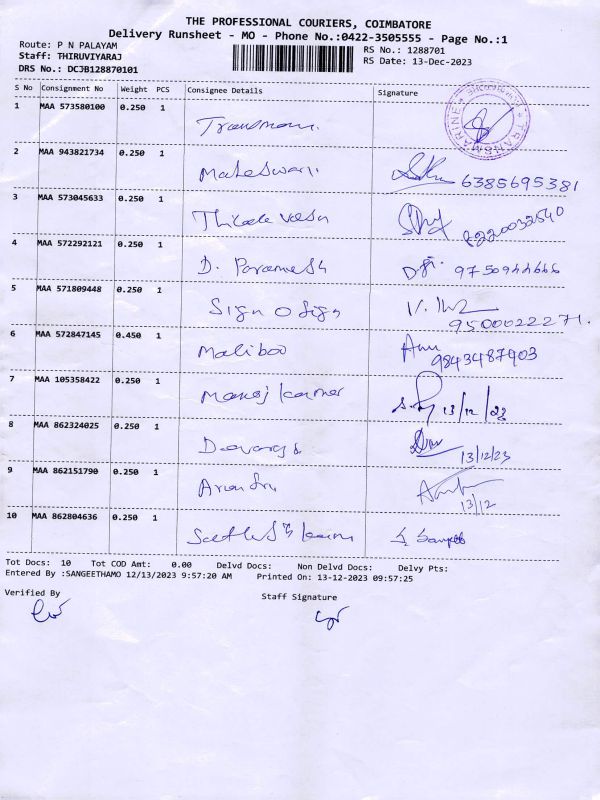 THE PROFESSIONAL COURIERS, COIMBATORE
Delivery Runsheet - MO - Phone No.:0422-3505555 - Page No.:1
Route: P N PALAYAM
Staff: THIRUVIYARAJ
DRS No.: DCJB128870101
RS No.: 1288701
RS Date: 13-Dec-2023
S No Consignment No Weight PCS Consignee Details Signature
1 MAA 573580100 0.250 1
TRANSMARINE
2 MAA 943821734 0.250 1
Maheswari 6385695381
3 MAA 573045633 0.250 1
4 MAA 572292121 0.250 1
D. Paramesh 9750944666
5 MAA 571809448 0.250 1
Sign O Sign
9500022271.
6 MAA 572847145 0.450 1
Maliboo 9843487903
7 MAA 105358422 0.250 1
Manoj kumar 13/12/23
8 MAA 862324025 0.250 1
13/12/23
9 MAA 862151790 0.250 1
13/12
10 MAA 862804636 0.250 1
Tot Docs: 10 Tot COD Amt: 0.00 Delvd Docs: Non Delvd Docs: Delvy Pts:
Entered By :SANGEETHAMO 12/13/2023 9:57:20 AM Printed On: 13-12-2023 09:57:25
Verified By Staff Signature